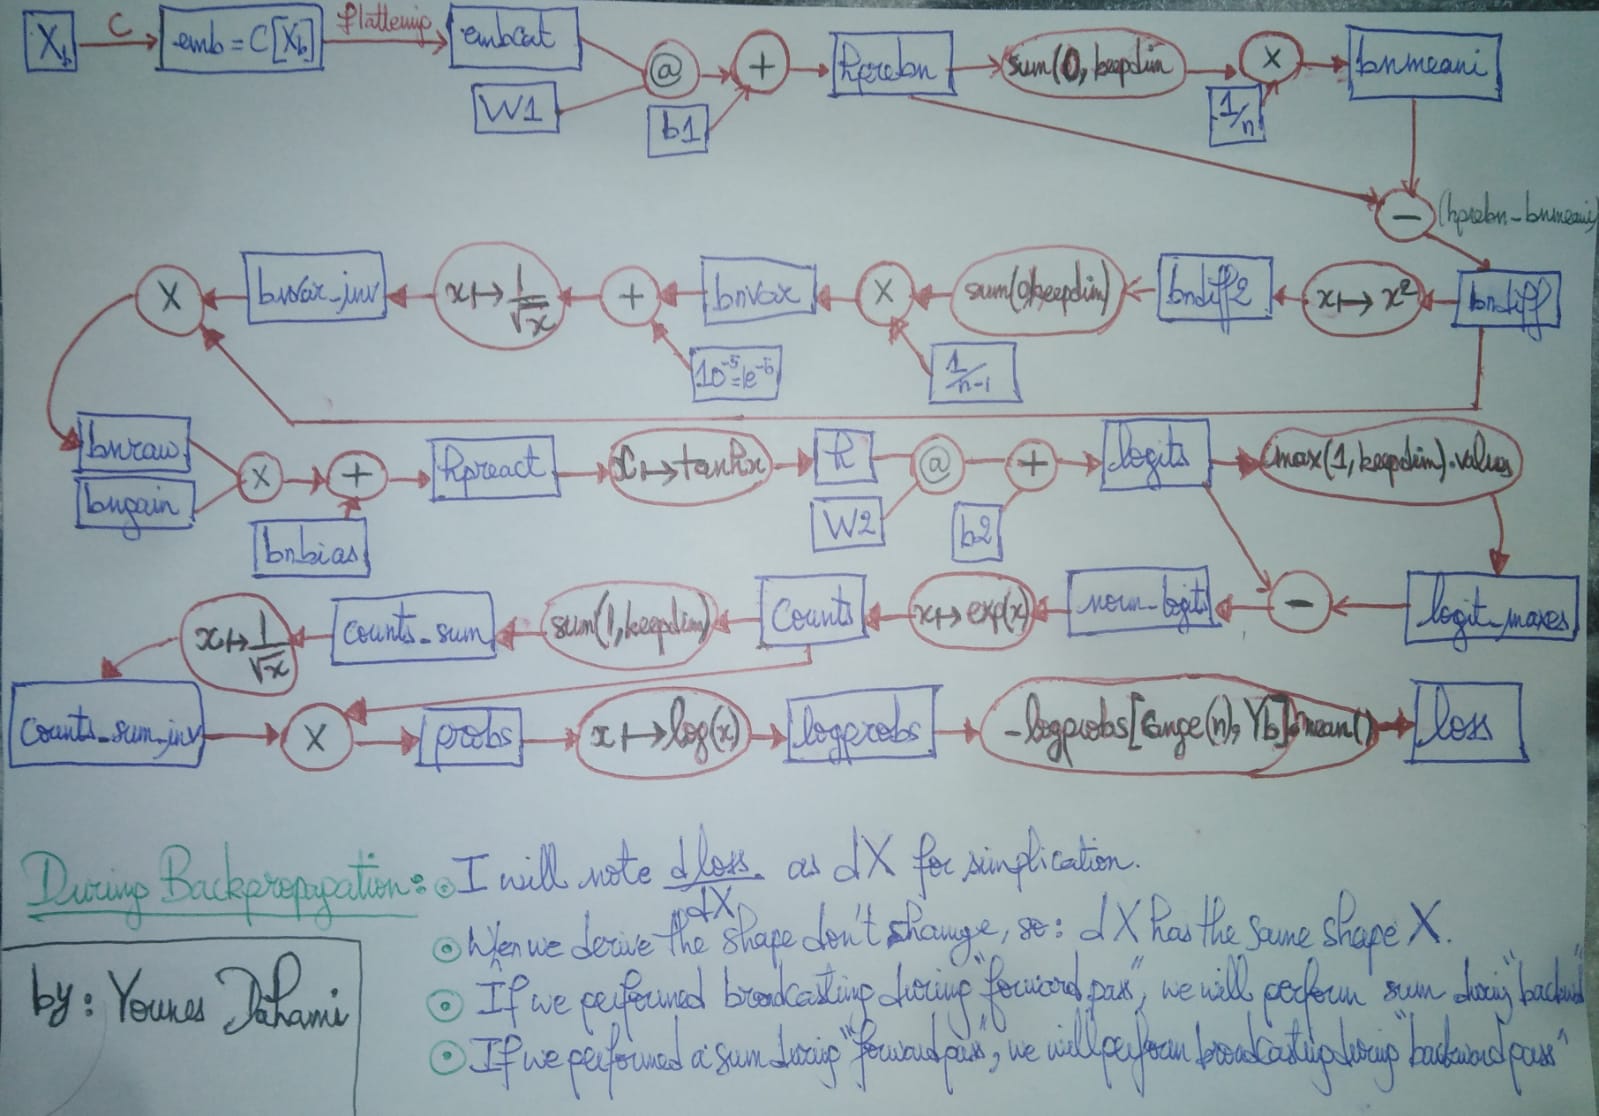 X_b C emb = C[X_b] flattening embcat @ + hprebn sum(0, keepdim × bnmeani
W1 b1 1/n
− (hprebn - bnmeani)
× bnvar_inv x ↦ 1/√x + bnvar × sum(0, keepdim) bndiff2 x ↦ x² bndiff
10⁻⁵ = 1e⁻⁵ 1/n-1
bnraw × + hpreact x ↦ tanhx h @ + logits max(1, keepdim).values
bngain bnbias W2 b2
x ↦ 1/√x counts_sum sum(1, keepdim) Counts x ↦ exp(x) norm_logits − logit_maxes
counts_sum_inv × probs x ↦ log(x) logprobs -logprobs[range(n), Yb].mean() loss
During Backpropagation: I will note dloss/dX as dX for simplication.
When we derive the shape don't change, so: dX has the same shape X.
If we performed broadcasting during "forward pass", we will perform sum during "backward"
If we performed a sum during "forward pass", we will perform broadcasting during "backward pass"
by: Younes Dahami